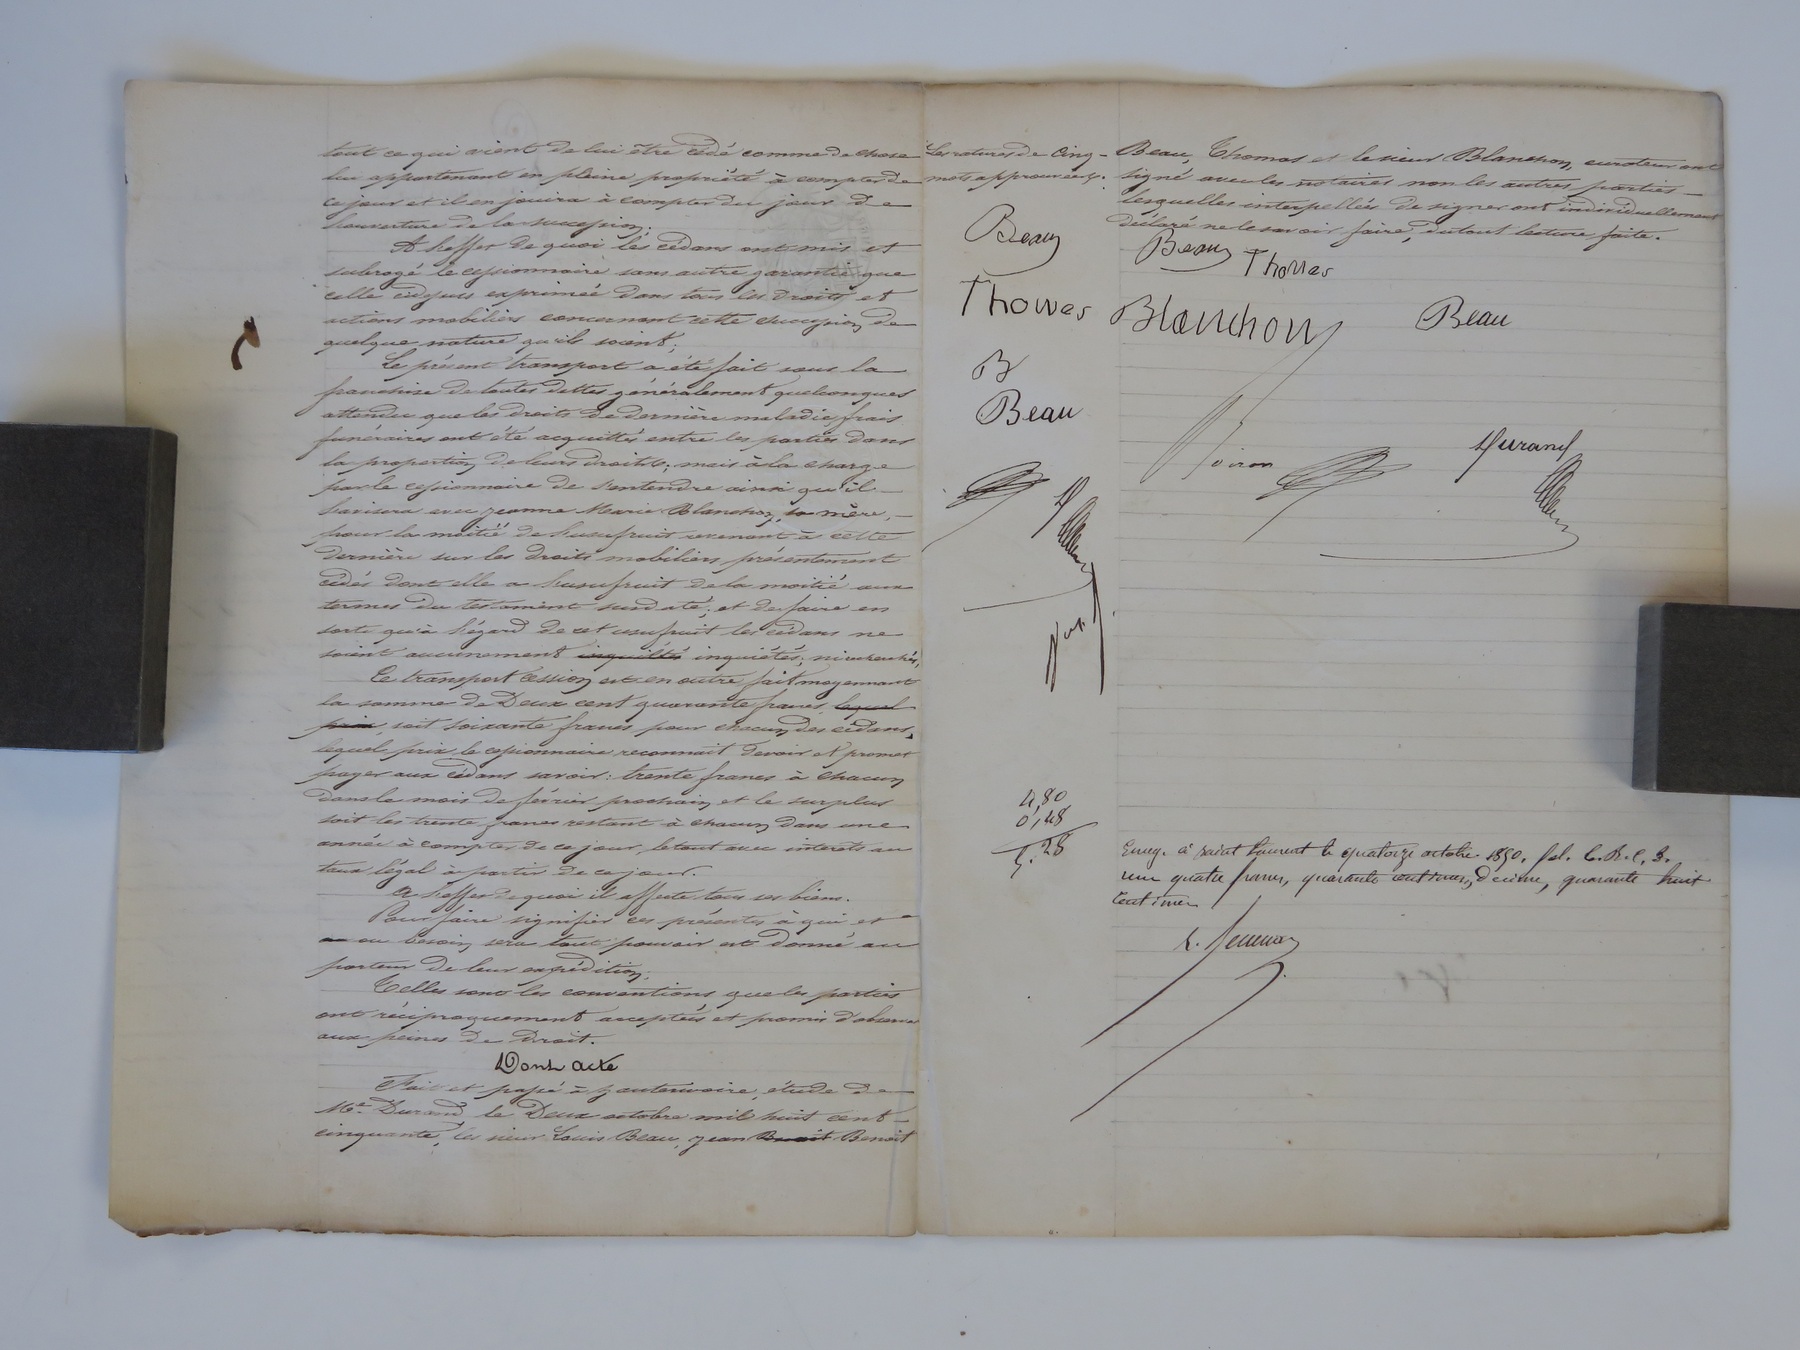 tout ce qui vient de lui être cédé comme de chose
lui appartenant en pleine propriété à compter de
ce jour et il en jouira à compter du jour de
l'ouverture de la succession.
A l'effet de quoi les cédans ont mis et
subrogé le cessionnaire sans autre garantie que
celle cidessus exprimée dans tous les droits et
actions mobiliers concernant cette succession de
quelque nature qu'ils soient.
Le présent transport a été fait sous la
franchise de toutes dettes généralement quelconques
attendu que les droits de dernière maladie, frais
funéraires ont été acquittés entre les parties dans
la proportion de leurs droits; mais à la charge
par le cessionnaire de s'entendre ainsi qu'il
l'avisera avec Jeanne Marie Blanchon, sa mère,
pour la moitié de l'usufruit revenant à cette
dernière sur les droits mobiliers présentement
cédés dont elle a l'usufruit de la moitié aux
termes du testament susdaté; et de faire en
sorte qu'à l'égard de cet usufruit les cédans ne
soient aucunement inquiétés, ni recherchés,
Ce transport cession est en outre fait moyennant
la somme de Deux cent quarante francs, lequel
prix, soit soixante francs pour chacun des cédans,
lequel prix le cessionnaire reconnait devoir et promet
payer aux cédans savoir: trente francs à chacun
dans le mois de février prochain et le surplus
soit les trente francs restant à chacun dans une
année à compter de ce jour, le tout avec intérêts au
taux légal à partir de ce jour.
A l'effet de quoi il affecte tous ses biens.
Pour faire signifier ces présentes à qui et
ou besoin sera tout pouvoir est donné au
porteur de leur expédition.
Telles sont les conventions que les parties
ont réciproquement acceptées et promis d'observer
aux peines de Droit.
Dont acte
Fait et passé à étude de
Me Durand le Deux octobre mil huit cent
cinquante, les sieur Louis Beau, Jean Benoit Benoit
Les ratures de cinq
mots approuvées.
Beau
Thomas
B
Beau
4,80
0,48
5.28
Beau, Thomas et le sieur Blanchon, curateur ont
signé avec les notaires non les autres parties
lesquelles interpellées de signer ont individuellement
déclaré ne le savoir faire, du tout lecture faite.
Beau Thomas
Blanchon Beau
Voiron Durand
Enreg. à Saint Laurent le quatorze octobre 1850. fol. C.
reçu quatre francs, quarante centimes, décime, quarante huit
centimes